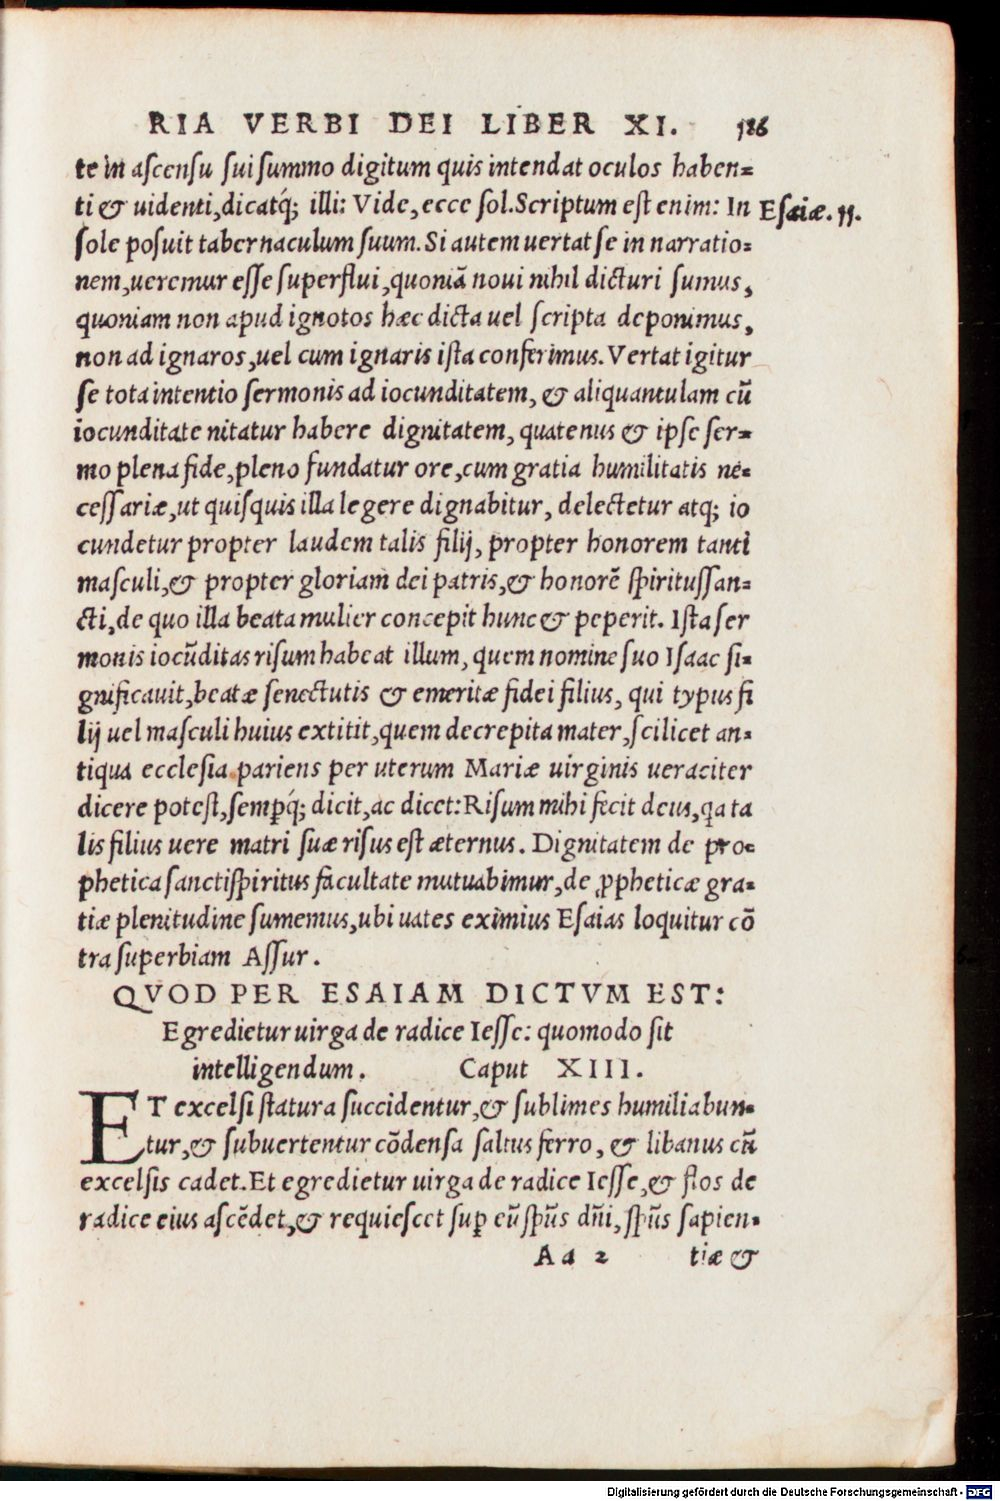 RIA VERBI DEI LIBER XI. 186
te in aſcenſu ſui ſummo digitum quis intendat oculos haben=
ti & uidenti, dicatq́; illi: Vide, ecce ſol. Scriptum eſt enim: In
Eſaiæ. 11.
ſole poſuit tabernaculum ſuum. Si autem uertat ſe in narratio=
nem, ueremur eſſe ſuperflui, quoniã noui nihil dicturi ſumus,
quoniam non apud ignotos hæc dicta uel ſcripta deponimus,
non ad ignaros, uel cum ignaris iſta conferimus. Vertat igitur
ſe tota intentio ſermonis ad iocunditatem, & aliquantulam cũ
iocunditate nitatur habere dignitatem, quatenus & ipſe ſer=
mo plena fide, pleno fundatur ore, cum gratia humilitatis ne=
ceſſariæ, ut quiſquis illa legere dignabitur, delectetur atq; io
cundetur propter laudem talis filij, propter honorem tanti
maſculi, & propter gloriam dei patris, & honorẽ ſpirituſſan=
cti, de quo illa beata mulier concepit hunc & peperit. Iſta ſer
monis iocũditas riſum habeat illum, quem nomine ſuo Iſaac ſi=
gnificauit, beatæ ſenectutis & emeritæ fidei filius, qui typus fi
lij uel maſculi huius extitit, quem decrepita mater, ſcilicet an=
tiqua eccleſia pariens per uterum Mariæ uirginis ueraciter
dicere poteſt, ſemꝑq́; dicit, ac dicet: Riſum mihi fecit deus, qa ta
lis filius uere matri ſuæ riſus eſt æternus. Dignitatem de pro=
phetica ſancti ſpiritus facultate mutuabimur, de ꝓpheticæ gra=
tiæ plenitudine ſumemus, ubi uates eximius Eſaias loquitur cõ
tra ſuperbiam Aſſur.
QVOD PER ESAIAM DICTVM EST:
Egredietur uirga de radice Ieſſe: quomodo ſit
intelligendum. Caput XIII.
ET excelſi ſtatura ſuccidentur, & ſublimes humiliabun=
tur, & ſubuertentur cõdenſa ſaltus ferro, & libanus cũ
excelſis cadet. Et egredietur uirga de radice Ieſſe, & flos de
radice eius aſcẽdet, & requieſcet ſuꝑ eũ ſpũs dñi, ſpũs ſapien=
Aa 2 tiæ &
Digitalisierung gefördert durch die Deutsche Forschungsgemeinschaft - DFG